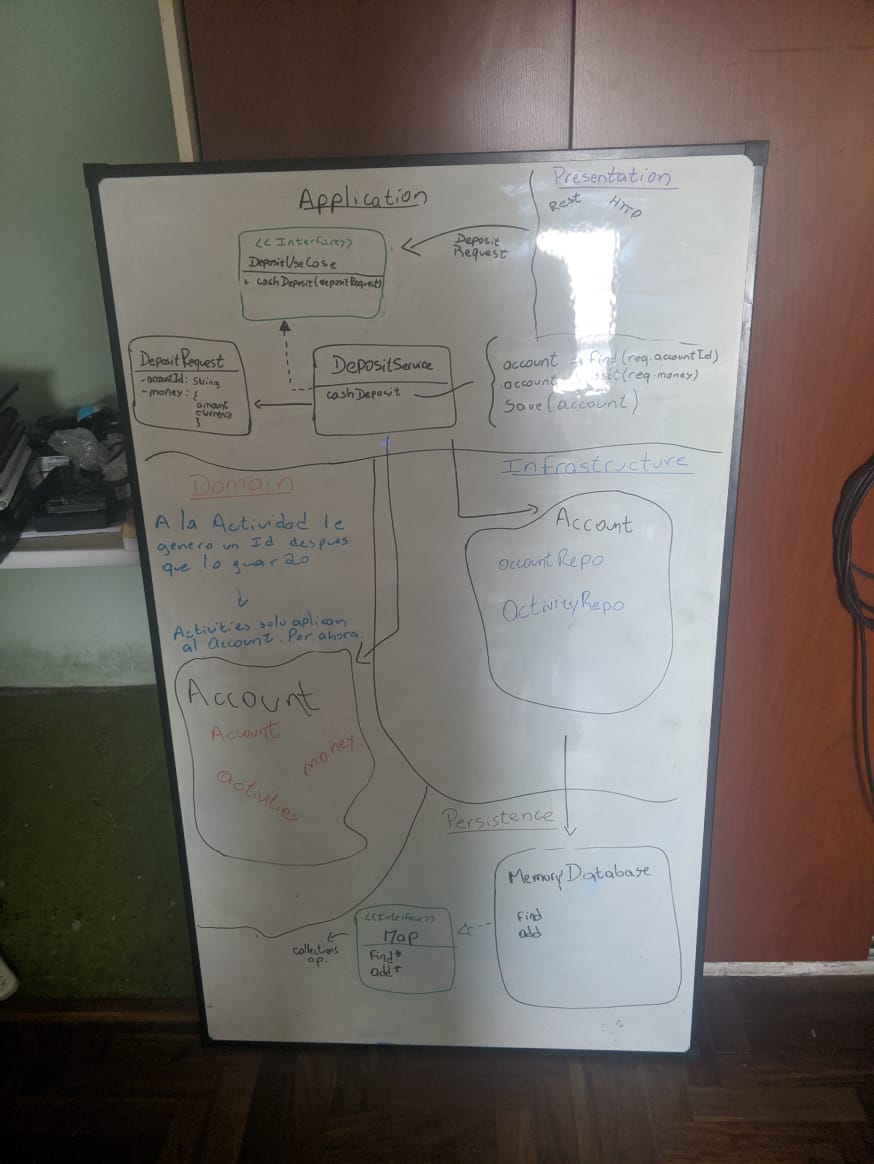 Application
Presentation
Rest HTTP
<<Interface>>
DepositUseCase
+ cashDeposit(depositRequest)
Deposit
Request
DepositRequest
- accountId: String
- money: {
amount
currency
}
DepositService
cashDeposit
account = find(req.accountId)
account (req.money)
Save(account)
Domain
A la Actividad le
genero un Id despues
que lo guardo
Activities solo aplican
al Account. Por ahora.
Account
Account
money
activities
Infrastructure
Account
accountRepo
ActivityRepo
Persistence
MemoryDatabase
find
add
<<Interface>>
Map
find*
add+
collections
op.